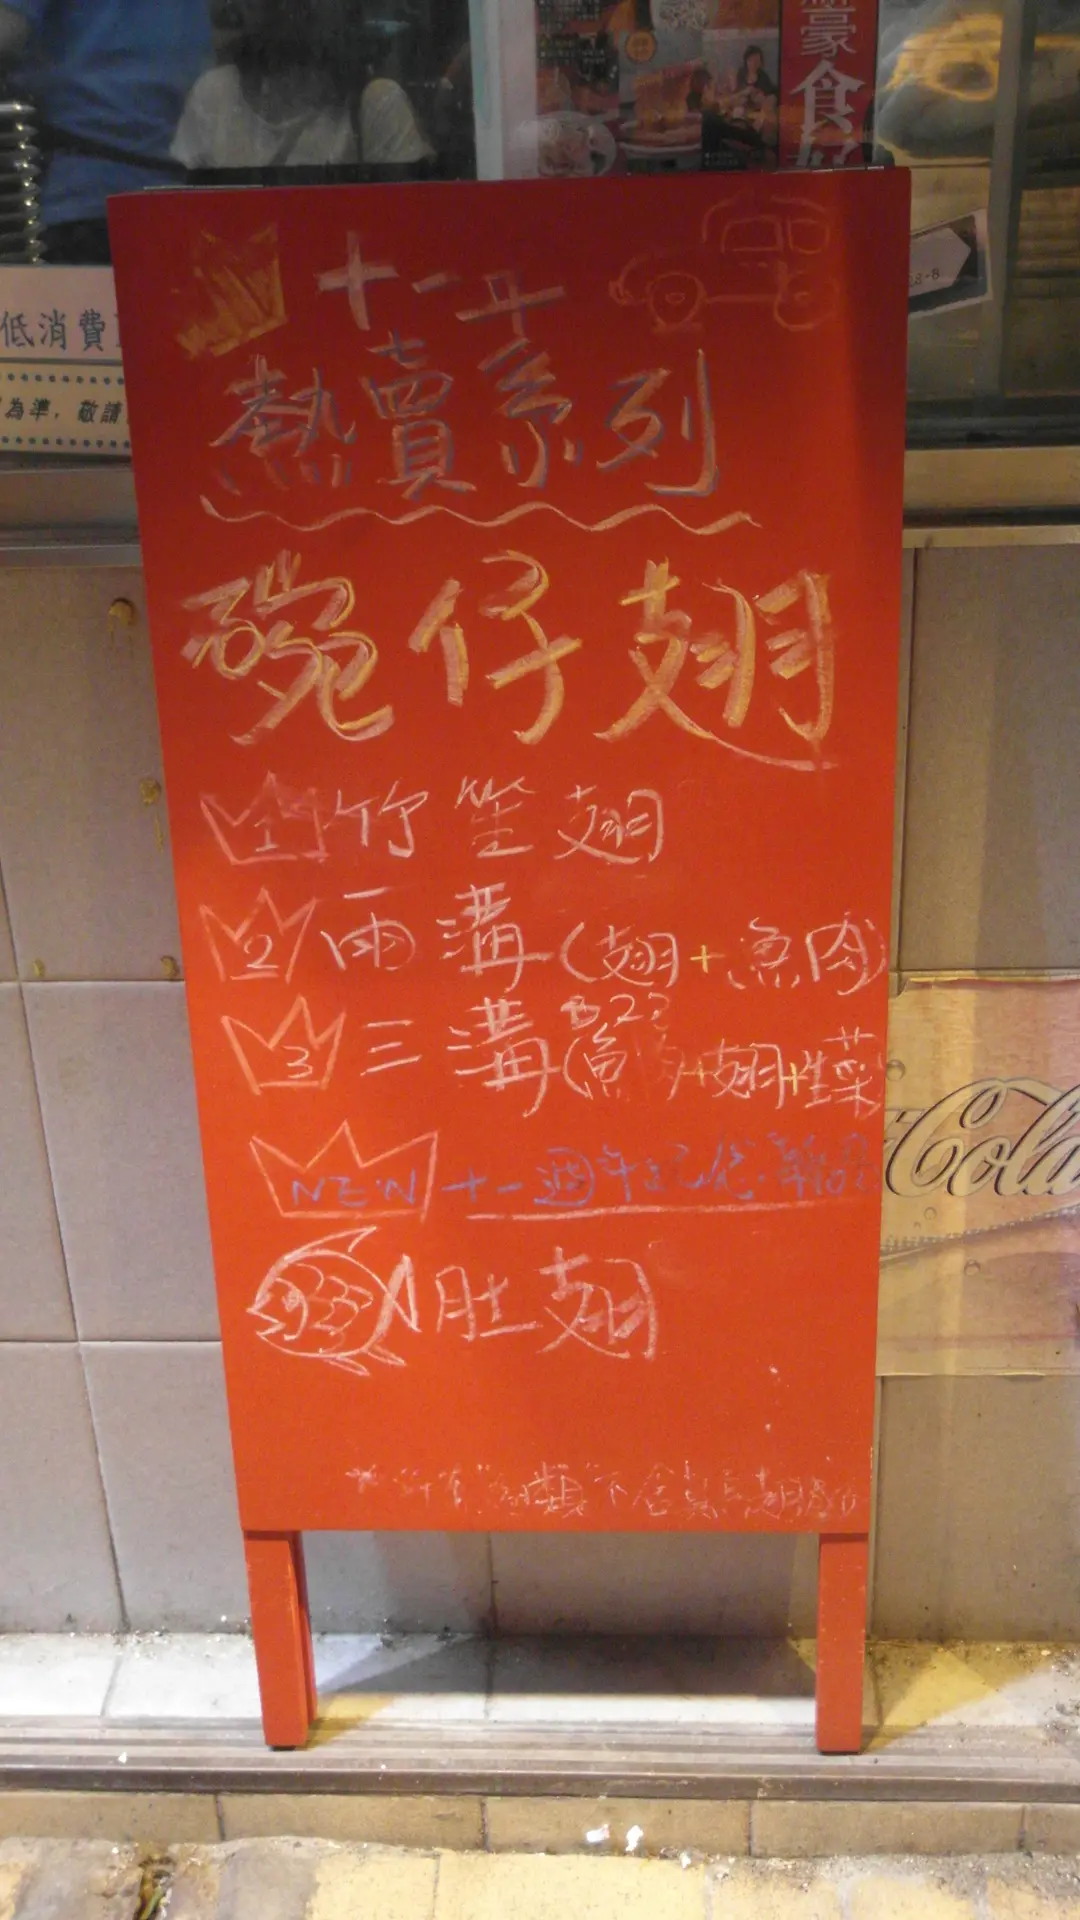 食
低消費
為準，敬請
28-B
十一年
熱賣系列
碗仔翅
1 竹笙翅
2 雨溝(翅+魚肉)
3 三溝(魚肉+翅+生菜
NEW 十一週年
肚翅
Cola